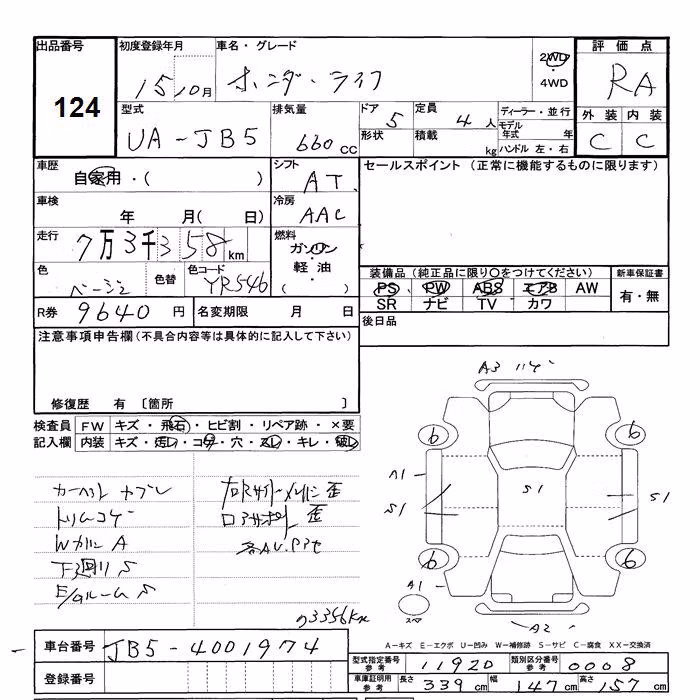 出品番号 初度登録年月 車名・グレード 2WD 評価点
124 15 10月 ホンダ・ライフ ・4WD RA
型式 排気量 ドア 5 定員 4人 ディーラー・並行 外装 内装
UA-JB5 660cc 形状 積載 kg モデル年式 年 C C
ハンドル 左・右
車歴 シフト セールスポイント (正常に機能するものに限ります)
自家用・( ) AT
車検 冷房
年 月( 日) AAC
走行 7万3千358km 燃料
ガソリン
色 色替 色コード 軽油
ベージュ YR546 ・( )
装備品 (純正品に限り○をつけてください) 新車保証書
PS PW ABS エアB AW 有・無
SR ナビ TV カワ
R券 9640円 名変期限 月 日 後日品
注意事項申告欄(不具合内容等は具体的に記入して下さい)
修復歴 有 〔箇所 〕
検査員 FW キズ・飛石・ヒビ割・リペア跡・×要
記入欄 内装 キズ・汚レ・コゲ・穴・スレ・キレ・破レ
A3
6 6
A1 S1 S1 S1
6 6
A1
スペア A2
トリムコゲ
WガラスA
下廻りS
E/GルームS
73358km
A-キズ E-エクボ U-凹み W-補修跡 S-サビ C-腐食 XX-交換済
車台番号 JB5-4001974
型式指定番号 参考 11920 類別区分番号 参考 0008
登録番号
車庫証明用 参考 長さ 339cm 幅 147cm 高さ 157cm